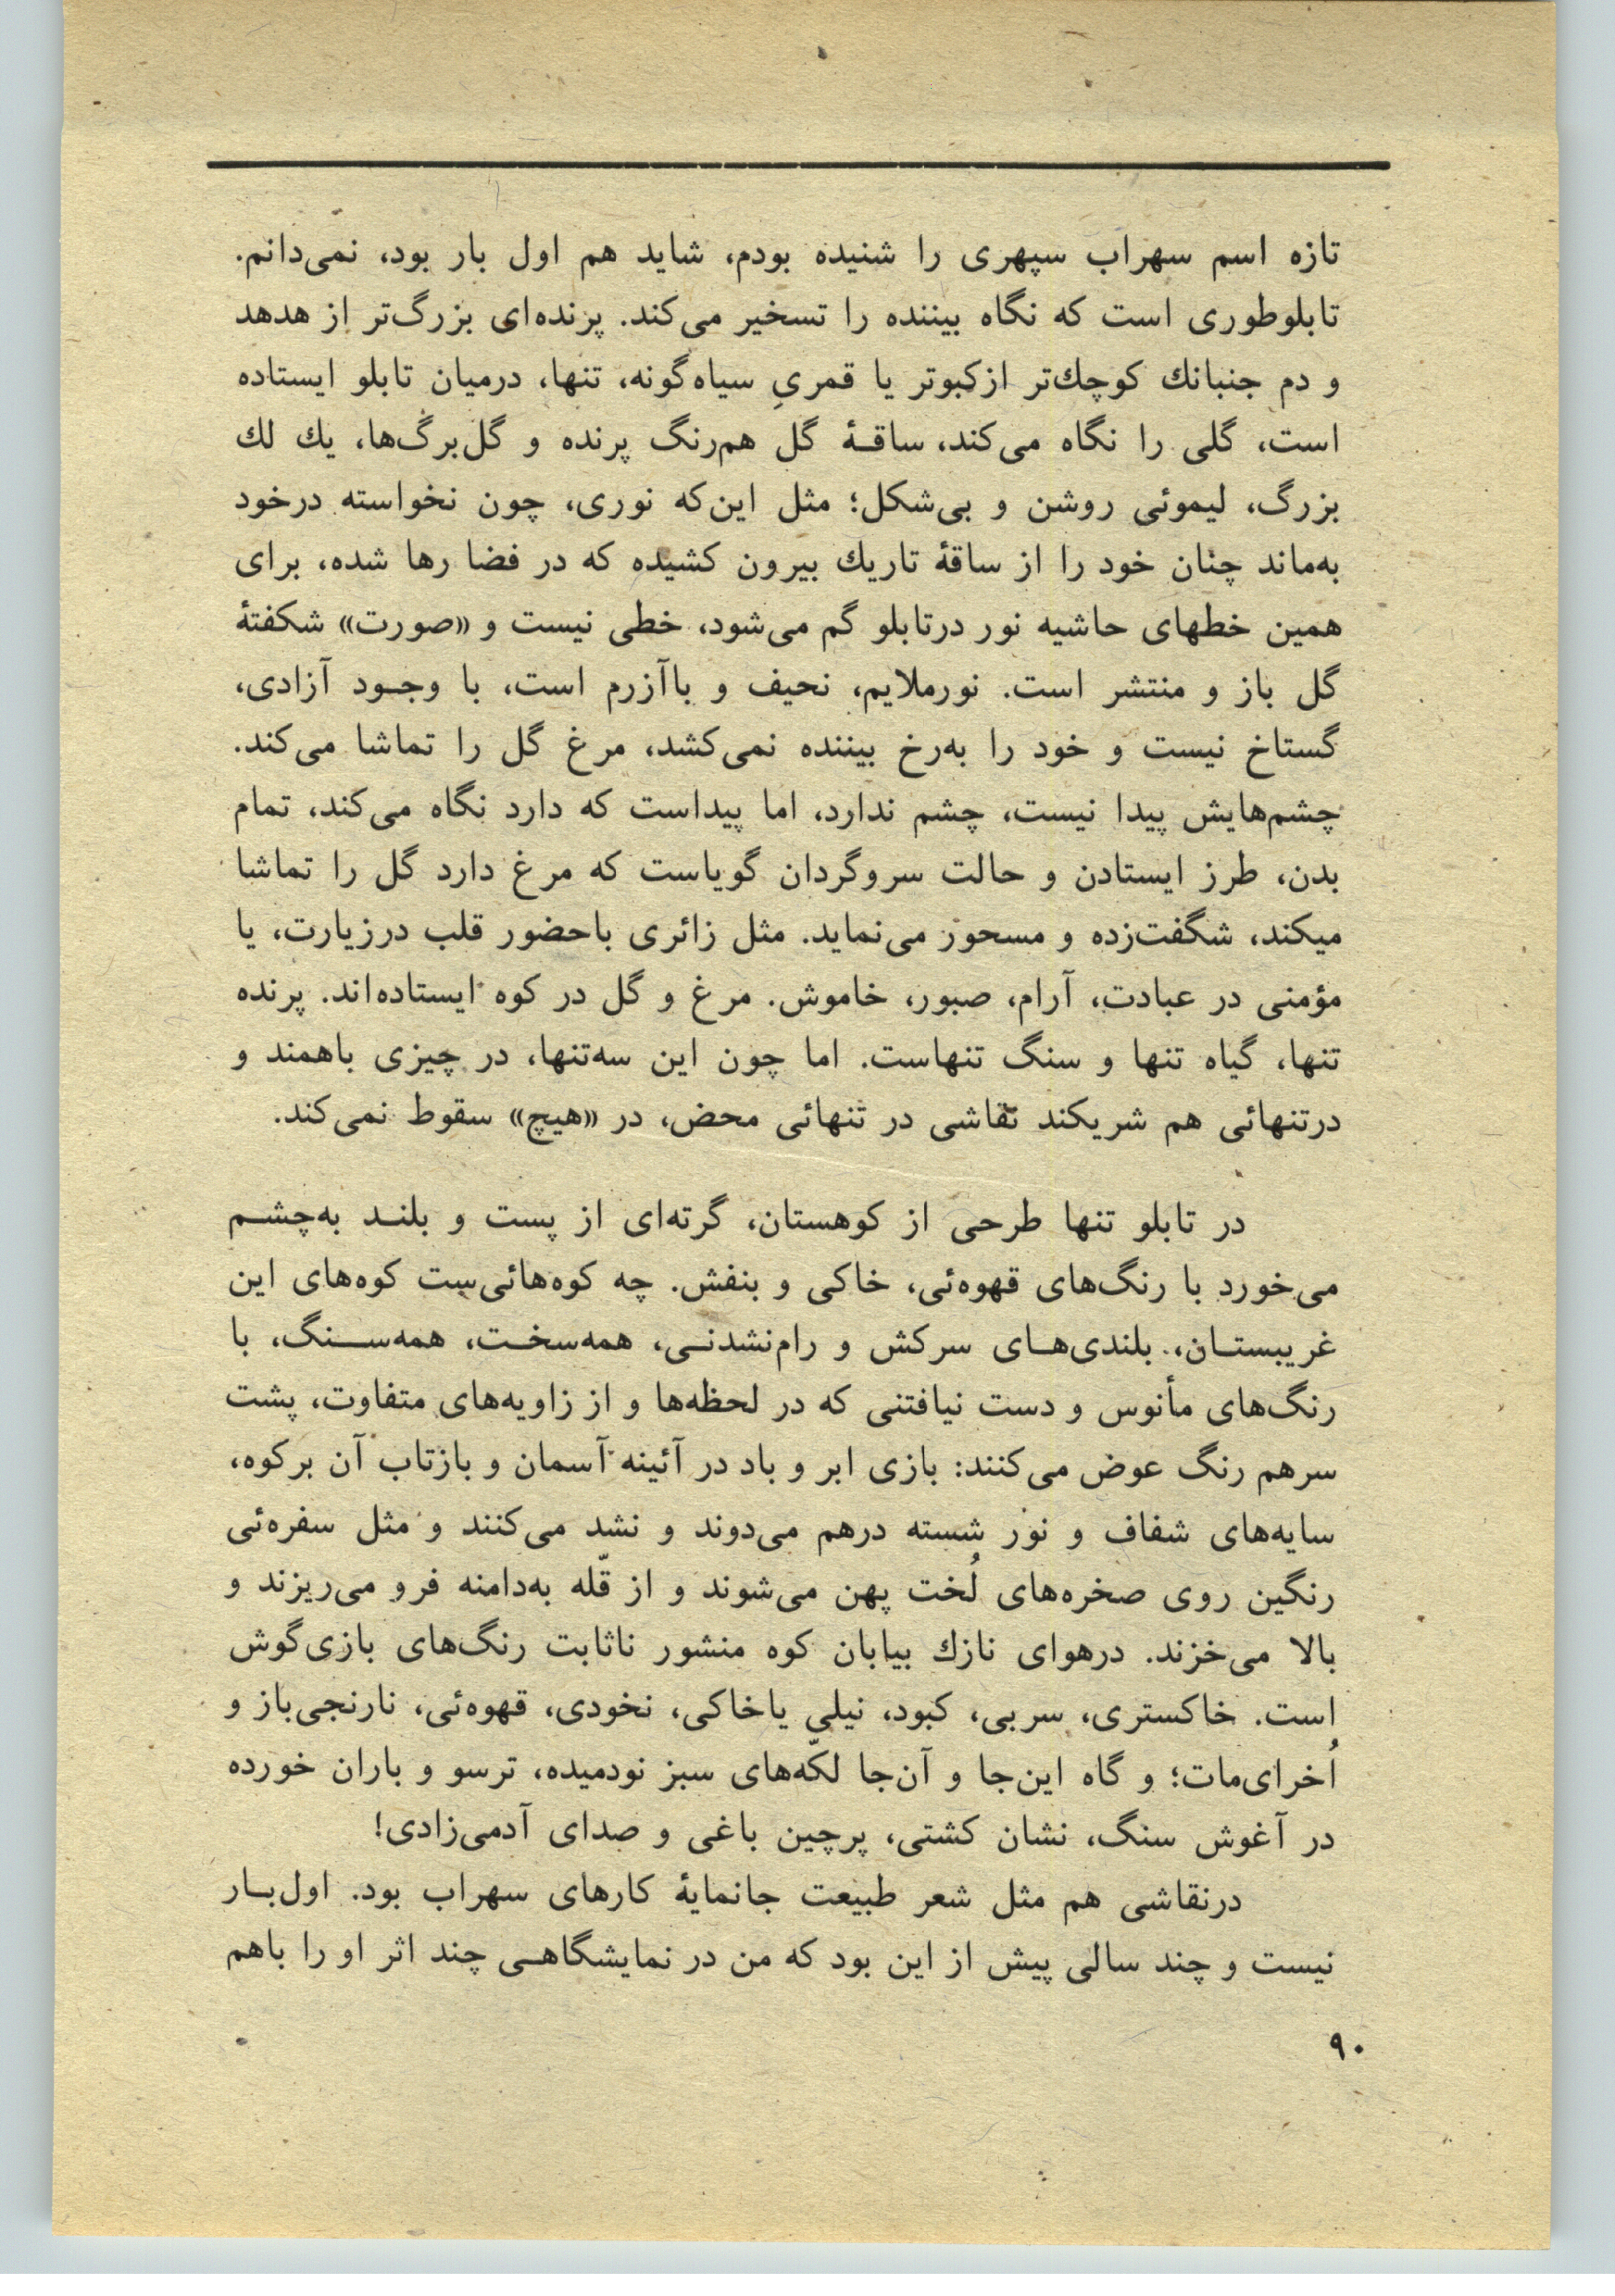 تازه اسم سهراب سپهری را شنیده بودم، شاید هم اول بار بود، نمی‌دانم.
تابلوطوری است که نگاه بیننده را تسخیر می‌کند. پرنده‌ای بزرگ‌تر از هدهد
و دم جنبانك کوچك‌تر ازکبوتر یا قمریِ سیاه‌گونه، تنها، درمیان تابلو ایستاده
است، گلی را نگاه می‌کند، ساقۀ گل هم‌رنگ پرنده و گل‌برگ‌ها، یك لك
بزرگ، لیموئی روشن و بی‌شکل؛ مثل این‌که نوری، چون نخواسته درخود
به‌ماند چنان خود را از ساقۀ تاریك بیرون کشیده که در فضا رها شده، برای
همین خطهای حاشیه نور درتابلو گم می‌شود، خطی نیست و «صورت» شکفتۀ
گل باز و منتشر است. نورملایم، نحیف و باآزرم است، با وجود آزادی،
گستاخ نیست و خود را به‌رخ بیننده نمی‌کشد، مرغ گل را تماشا می‌کند.
چشم‌هایش پیدا نیست، چشم ندارد، اما پیداست که دارد نگاه می‌کند، تمام
بدن، طرز ایستادن و حالت سروگردان گویاست که مرغ دارد گل را تماشا
میکند، شگفت‌زده و مسحور می‌نماید. مثل زائری باحضور قلب درزیارت، یا
مؤمنی در عبادت، آرام، صبور، خاموش. مرغ و گل در کوه ایستاده‌اند. پرنده
تنها، گیاه تنها و سنگ تنهاست. اما چون این سه‌تنها، در چیزی باهمند و
درتنهائی هم شریکند نقاشی در تنهائی محض، در «هیچ» سقوط نمی‌کند.
در تابلو تنها طرحی از کوهستان، گرته‌ای از پست و بلند به‌چشم
می‌خورد با رنگ‌های قهوه‌ئی، خاکی و بنفش. چه کوه‌هائی‌ست کوه‌های این
غریبستان، بلندی‌های سرکش و رام‌نشدنی، همه‌سخت، همه‌سنگ، با
رنگ‌های مأنوس و دست نیافتنی که در لحظه‌ها و از زاویه‌های متفاوت، پشت
سرهم رنگ عوض می‌کنند: بازی ابر و باد در آئینه آسمان و بازتاب آن برکوه،
سایه‌های شفاف و نور شسته درهم می‌دوند و نشد می‌کنند و مثل سفره‌ئی
رنگین روی صخره‌های لُخت پهن می‌شوند و از قلّه به‌دامنه فرو می‌ریزند و
بالا می‌خزند. درهوای نازك بیابان کوه منشور ناثابت رنگ‌های بازی‌گوش
است. خاکستری، سربی، کبود، نیلی یاخاکی، نخودی، قهوه‌ئی، نارنجی‌باز و
اُخرای‌مات؛ و گاه این‌جا و آن‌جا لکّه‌های سبز نودمیده، ترسو و باران خورده
در آغوش سنگ، نشان کشتی، پرچین باغی و صدای آدمی‌زادی!
درنقاشی هم مثل شعر طبیعت جانمایۀ کارهای سهراب بود. اول‌بار
نیست و چند سالی پیش از این بود که من در نمایشگاهی چند اثر او را باهم
۹۰